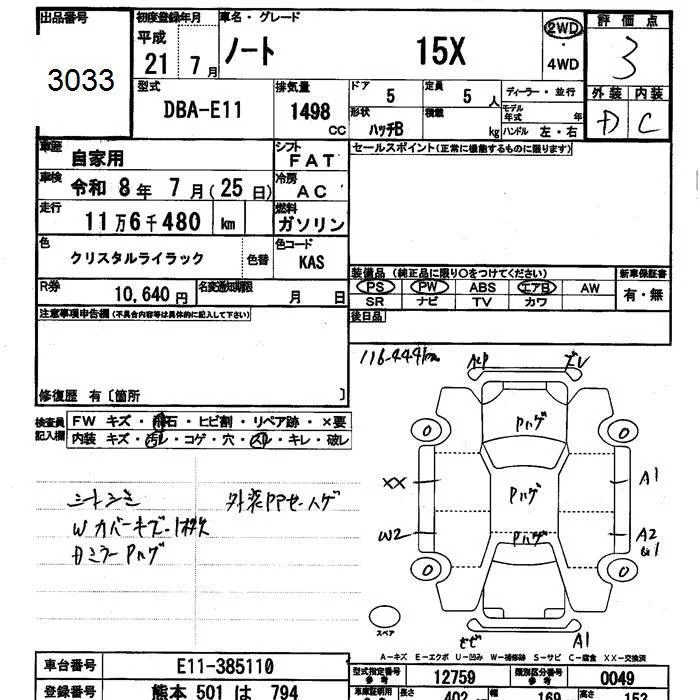 出品番号 初度登録年月 車名・グレード 評価点
3033 平成 21年 7月 ノート 15X 2WD・4WD 3
型式 排気量 ドア 定員 ディーラー・並行 外装 内装
DBA-E11 1498 CC 5 5人 モデル年式 年 D C
形状 ハッチB 積載 kg ハンドル 左・右
車歴 自家用 シフト FAT セールスポイント(正常に機能するものに限ります)
車検 令和 8年 7月(25日) 冷房 AC
走行 11万6千480 km 燃料 ガソリン
色 クリスタルライラック 色替 色コード KAS
装備品 (純正品に限り○をつけてください) 新車保証書
R券 10,640円 名変通知期限 月 日 PS PW ABS エアB AW 有・無
SR ナビ TV カワ
注意事項申告欄(不具合内容等は具体的に記入して下さい) 後日品
116-444km
修復歴 有〔箇所 〕
検査員記入欄 FW キズ・飛石・ヒビ割・リペア跡・×要
内装 キズ・汚レ・コゲ・穴・スレ・キレ・破レ
シートシミ 外装PPセ-ハゲ
W カバーキズ
DミラーPハゲ
Pハゲ
0 0
Pハゲ
XX A1
Pハゲ
W2 A2
0 0
スペア
A1
A-キズ E-エクボ U-凹み W-補修跡 S-サビ C-腐食 XX-交換済
車台番号 E11-385110 型式指定番号 参考 12759 類別区分番号 参考 0049
登録番号 熊本 501 は 794 車庫証明用 長さ 402 幅 169 高さ 153